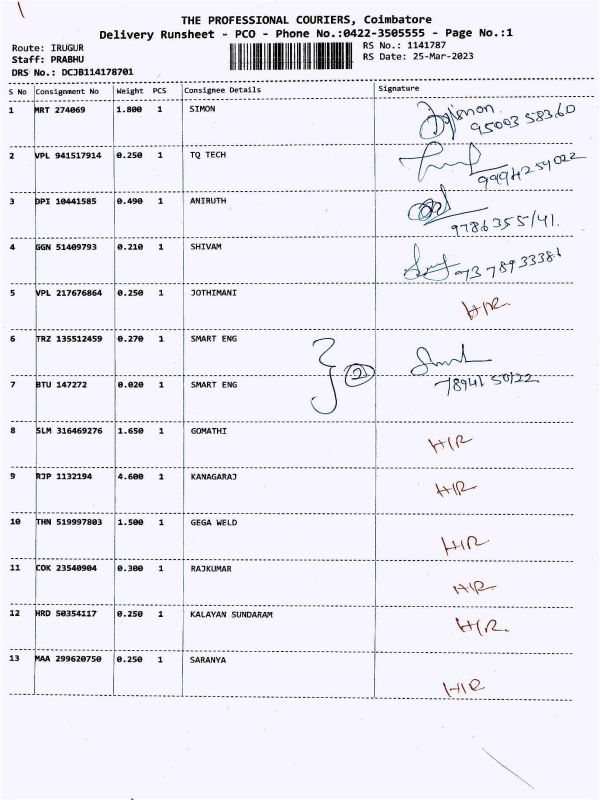 THE PROFESSIONAL COURIERS, Coimbatore
Delivery Runsheet - PCO - Phone No.:0422-3505555 - Page No.:1
Route: IRUGUR RS No.: 1141787
Staff: PRABHU RS Date: 25-Mar-2023
DRS No.: DCJB114178701
S No Consignment No Weight PCS Consignee Details Signature
1 MRT 274069 1.800 1 SIMON
95003 58360
2 VPL 941517914 0.250 1 TQ TECH
9994259022
3 DPI 10441585 0.490 1 ANIRUTH
9786355141.
4 GGN 51409793 0.210 1 SHIVAM
7378933386
5 VPL 217676864 0.250 1 JOTHIMANI H/R.
6 TRZ 135512459 0.270 1 SMART ENG
2
7 BTU 147272 0.020 1 SMART ENG 78941 50122
8 SLM 316469276 1.650 1 GOMATHI H/R
9 RJP 1132194 4.600 1 KANAGARAJ H/R
10 THN 519997803 1.500 1 GEGA WELD H/R
11 COK 23540904 0.300 1 RAJKUMAR H/R
12 HRD 50354117 0.250 1 KALAYAN SUNDARAM H/R.
13 MAA 299620750 0.250 1 SARANYA H/R